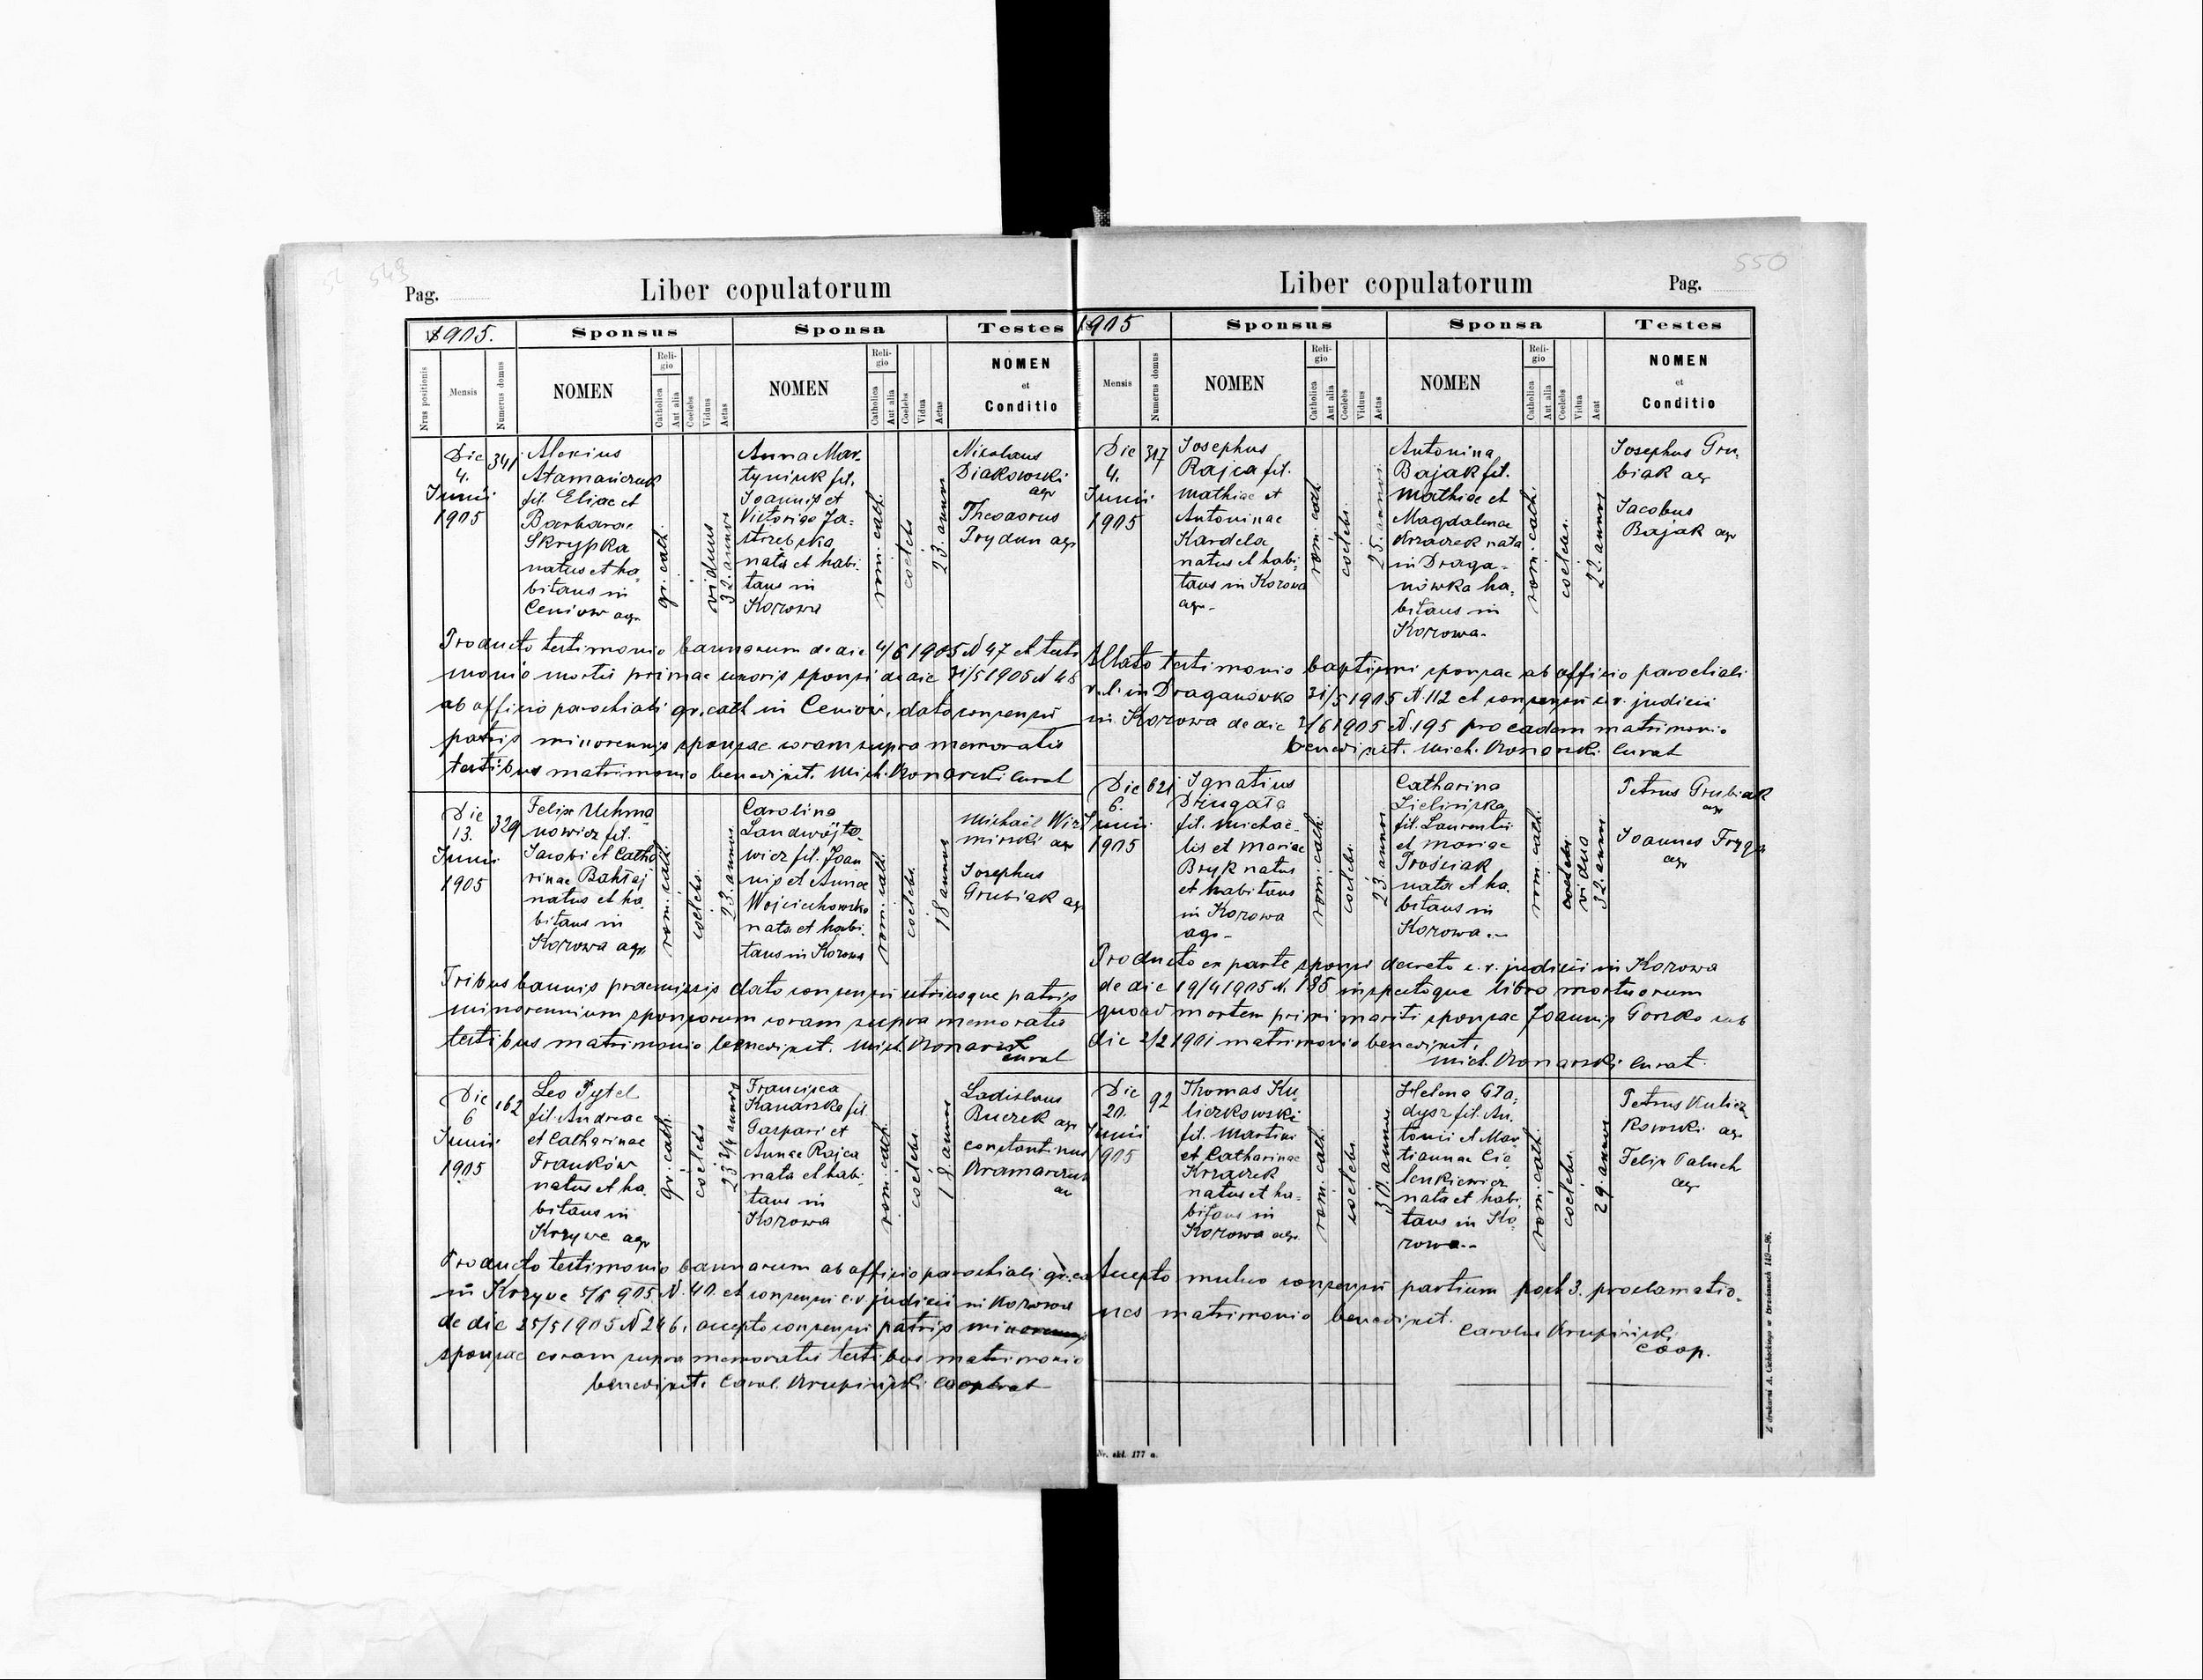 549
Pag.
Liber copulatorum
1905.
Sponsus
Sponsa
Testes
Nrus positionis
Mensis
Numerus domus
NOMEN
Reli-
gio
Catholica
Aut alia
Coelebs
Viduus
Aetas
NOMEN
Reli-
gio
Catholica
Aut alia
Coelebs
Vidua
Aetas
NOMEN
et
Conditio
Die
4.
Junii
1905
341
Alexius
Atamańczuk
fil. Eliae et
Barbarae
Skrypka
natus et ha-
bitans in
Ceniow agr.
gr. cath.
viduus
32. annos
Anna Mar-
tyniuk fil.
Joannis et
Victoriae Ja-
strzebska
nata et habi-
tans in
Kozowa
rom. cath.
coelebs
23. annos
Nicolaus
Diakowski
agr
Theodorus
Prydun agr
Producto testimonio bannorum de die 4/6 1905 N 47 et testi
monio mortis primae uxoris sponsi de die 31/5 1905 N 46
ab officio parochiali gr. cath in Ceniów, dato consensu
patris minorennis sponsae coram supra memoratis
testibus matrimonio benedixit. Mich. Konarski Curat
Die
13.
Junii
1905
329
Felix Uchma
nowicz fil.
Jacobi et Catha
rinae Bahłaj
natus et ha-
bitans in
Kozowa agr.
rom. cath.
coelebs.
23. annos
Carolina
Landwójto-
wicz fil. Joan
nis et Annae
Wojciechowska
nata et habi-
tans in Kozowa
rom. cath.
coelebs.
18 annos
Michaël Wiz
minski agr
Josephus
Grubiak agr
Tribus bannis praemissis dato consensu utriusque patris
minorennium sponsorum coram supra memoratis
testibus matrimonio benedixit. Mich. Konarski
Curat
Die
6
Junii
1905
162
Leo Pytel
fil. Andreae
et Catharinae
Franków
natus et ha-
bitans in
Krzywe agr
gr. cath.
coelebs
23 3/4 annos
Francisca
Kanarska fil.
Gaspari et
Annae Rajca
nata et habi-
tans in
Kozowa
rom. cath.
coelebs.
18 annos
Ladislaus
Buczek agr
constantinus
Producto testimonio bannorum ab officio parochiali gr. ca
in Krzywe 5/6 905 N. 40. et consensu c.r. judicii in Kozowa
de die 25/5 1905 N 246, accepto consensu patris minorennis
sponsae coram supra memoratis testibus matrimonio
benedixit. Carol. Krupiński Cooperat
550
Liber copulatorum
Pag.
1905
Sponsus
Sponsa
Testes
Mensis
Numerus domus
NOMEN
Reli-
gio
Catholica
Aut alia
Coelebs
Viduus
Aetas
NOMEN
Reli-
gio
Catholica
Aut alia
Coelebs
Vidua
Aetat
NOMEN
et
Conditio
Die
4.
Junii
1905
317
Josephus
Rajca fil.
Mathiae et
Antoninae
Kardela
natus et habi-
tans in Kozowa
agr.
rom. cath.
coelebs.
25. annos.
Antonina
Bajak fil.
Mathiae et
Magdalenae
Krzaczek nata
in Draga-
nówka ha-
bitans in
Kozowa.
rom. cath.
coelebs.
22. annos
Josephus Gru-
biak agr
Jacobus
Bajak agr
Allato testimonio baptismi sponsae ab officio parochiali
r. l. in Draganówka 31/5 1905 N. 112 et consensu c.r. judicii
in Kozowa de die 2/6 1905 N. 195 pro eadem matrimonio
benedixit. Mich. Konarski. Curat
Die
6.
Junii
1905
621
Ignatius
Dziugała
fil. Michae-
lis et Mariae
Bryk natus
et habitans
in Kozowa
agr.
rom. cath.
coelebs.
23. annos
Catharina
Zielińska
fil. Laurentii
et Mariae
Prościak
nata et ha-
bitans in
Kozowa.
rom. cath.
coelebs.
vidua
32. annos
Petrus Grubiak
agr
Joannes Fryga
agr
Producto ex parte sponsi decreto c.r. judicii in Kozowa
de die 19/4 1905 N. 185 inspectoque libro mortuorum
quoad mortem primi mariti sponsae Joannis Gorzko sub
die 2/2 1901 matrimonio benedixit.
Mich. Konarski Curat.
Die
20.
Junii
1905
92
Thomas Ku-
liczkowski
fil. Martini
et Catharinae
Krzaczek
natus et ha-
bitans in
Kozowa agr.
rom. cath.
coelebs
30. annos
Helena Gła-
dysz fil. An-
tonii et Mar-
tiannae Cie-
lenkiewicz
nata et habi-
tans in Ko-
zowa.
rom. cath.
coelebs.
29. annos
Petrus Kulicz
kowski agr
Felix Paluch
agr
Accepto mutuo consensu partium post 3. proclamatio-
nes matrimonio benedixit.
Carolus Krupiński
coop.
Nr. skł. 177 a.
Z drukarni A. Cichockiego w Brzeżanach 149—96.